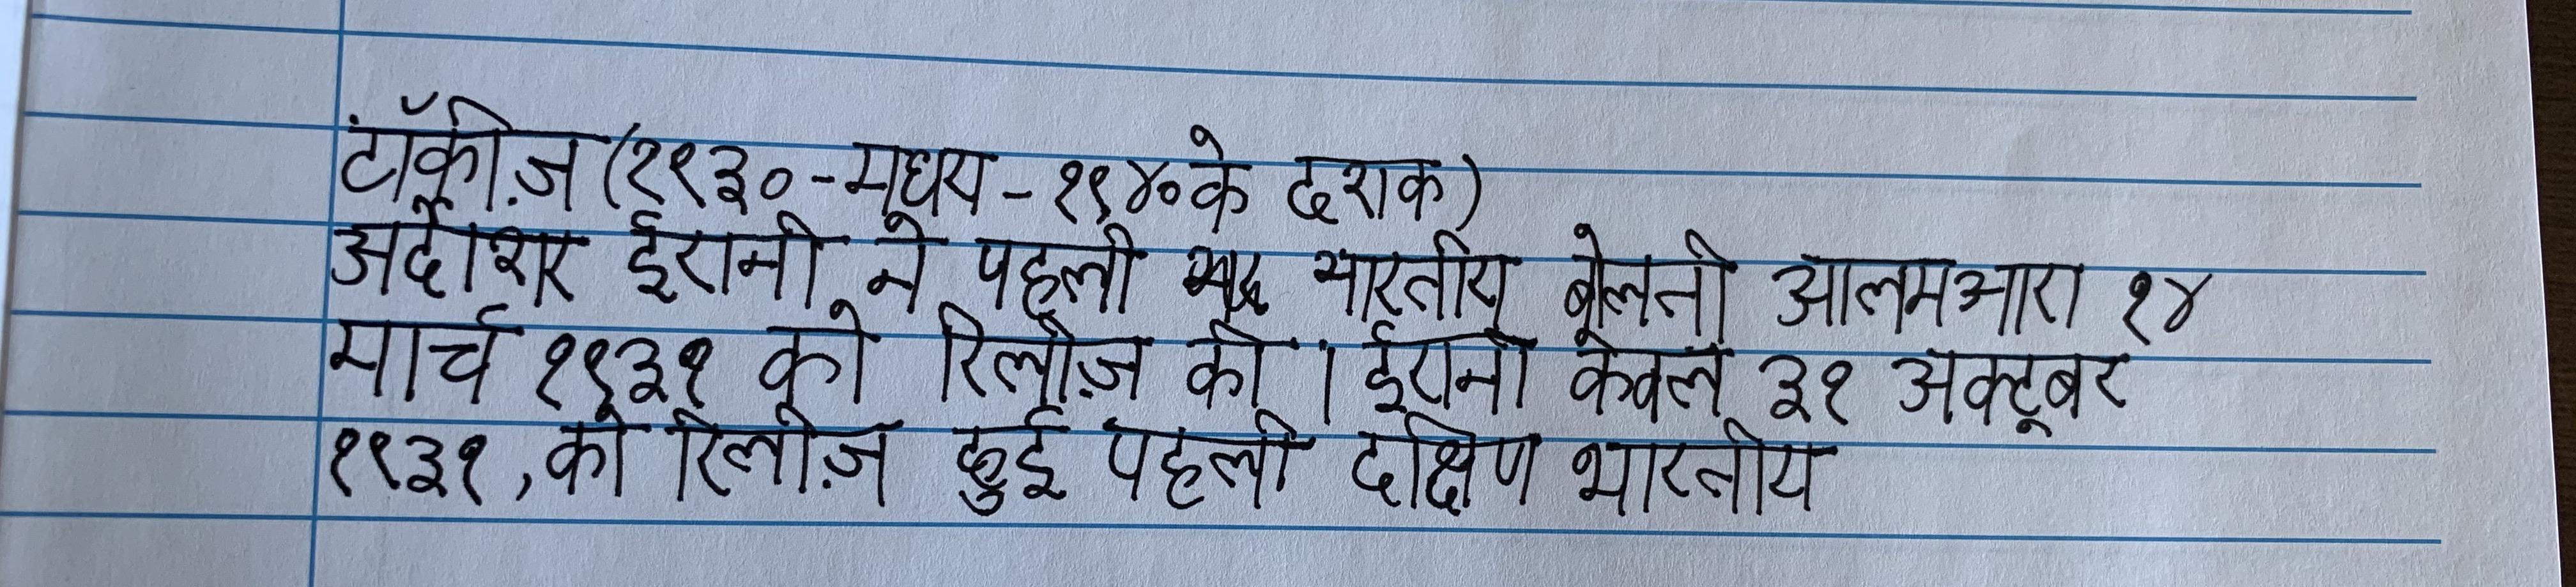 टॉकीज़ (१९३०-मध्य-१९४० के दशक)
अर्देशिर ईरानी ने पहली भारतीय बोलती आलमआरा १४
मार्च १९३१ को रिलीज़ की । ईरानी केवल ३१ अक्टूबर
१९३१, को रिलीज़ हुई पहली दक्षिण भारतीय